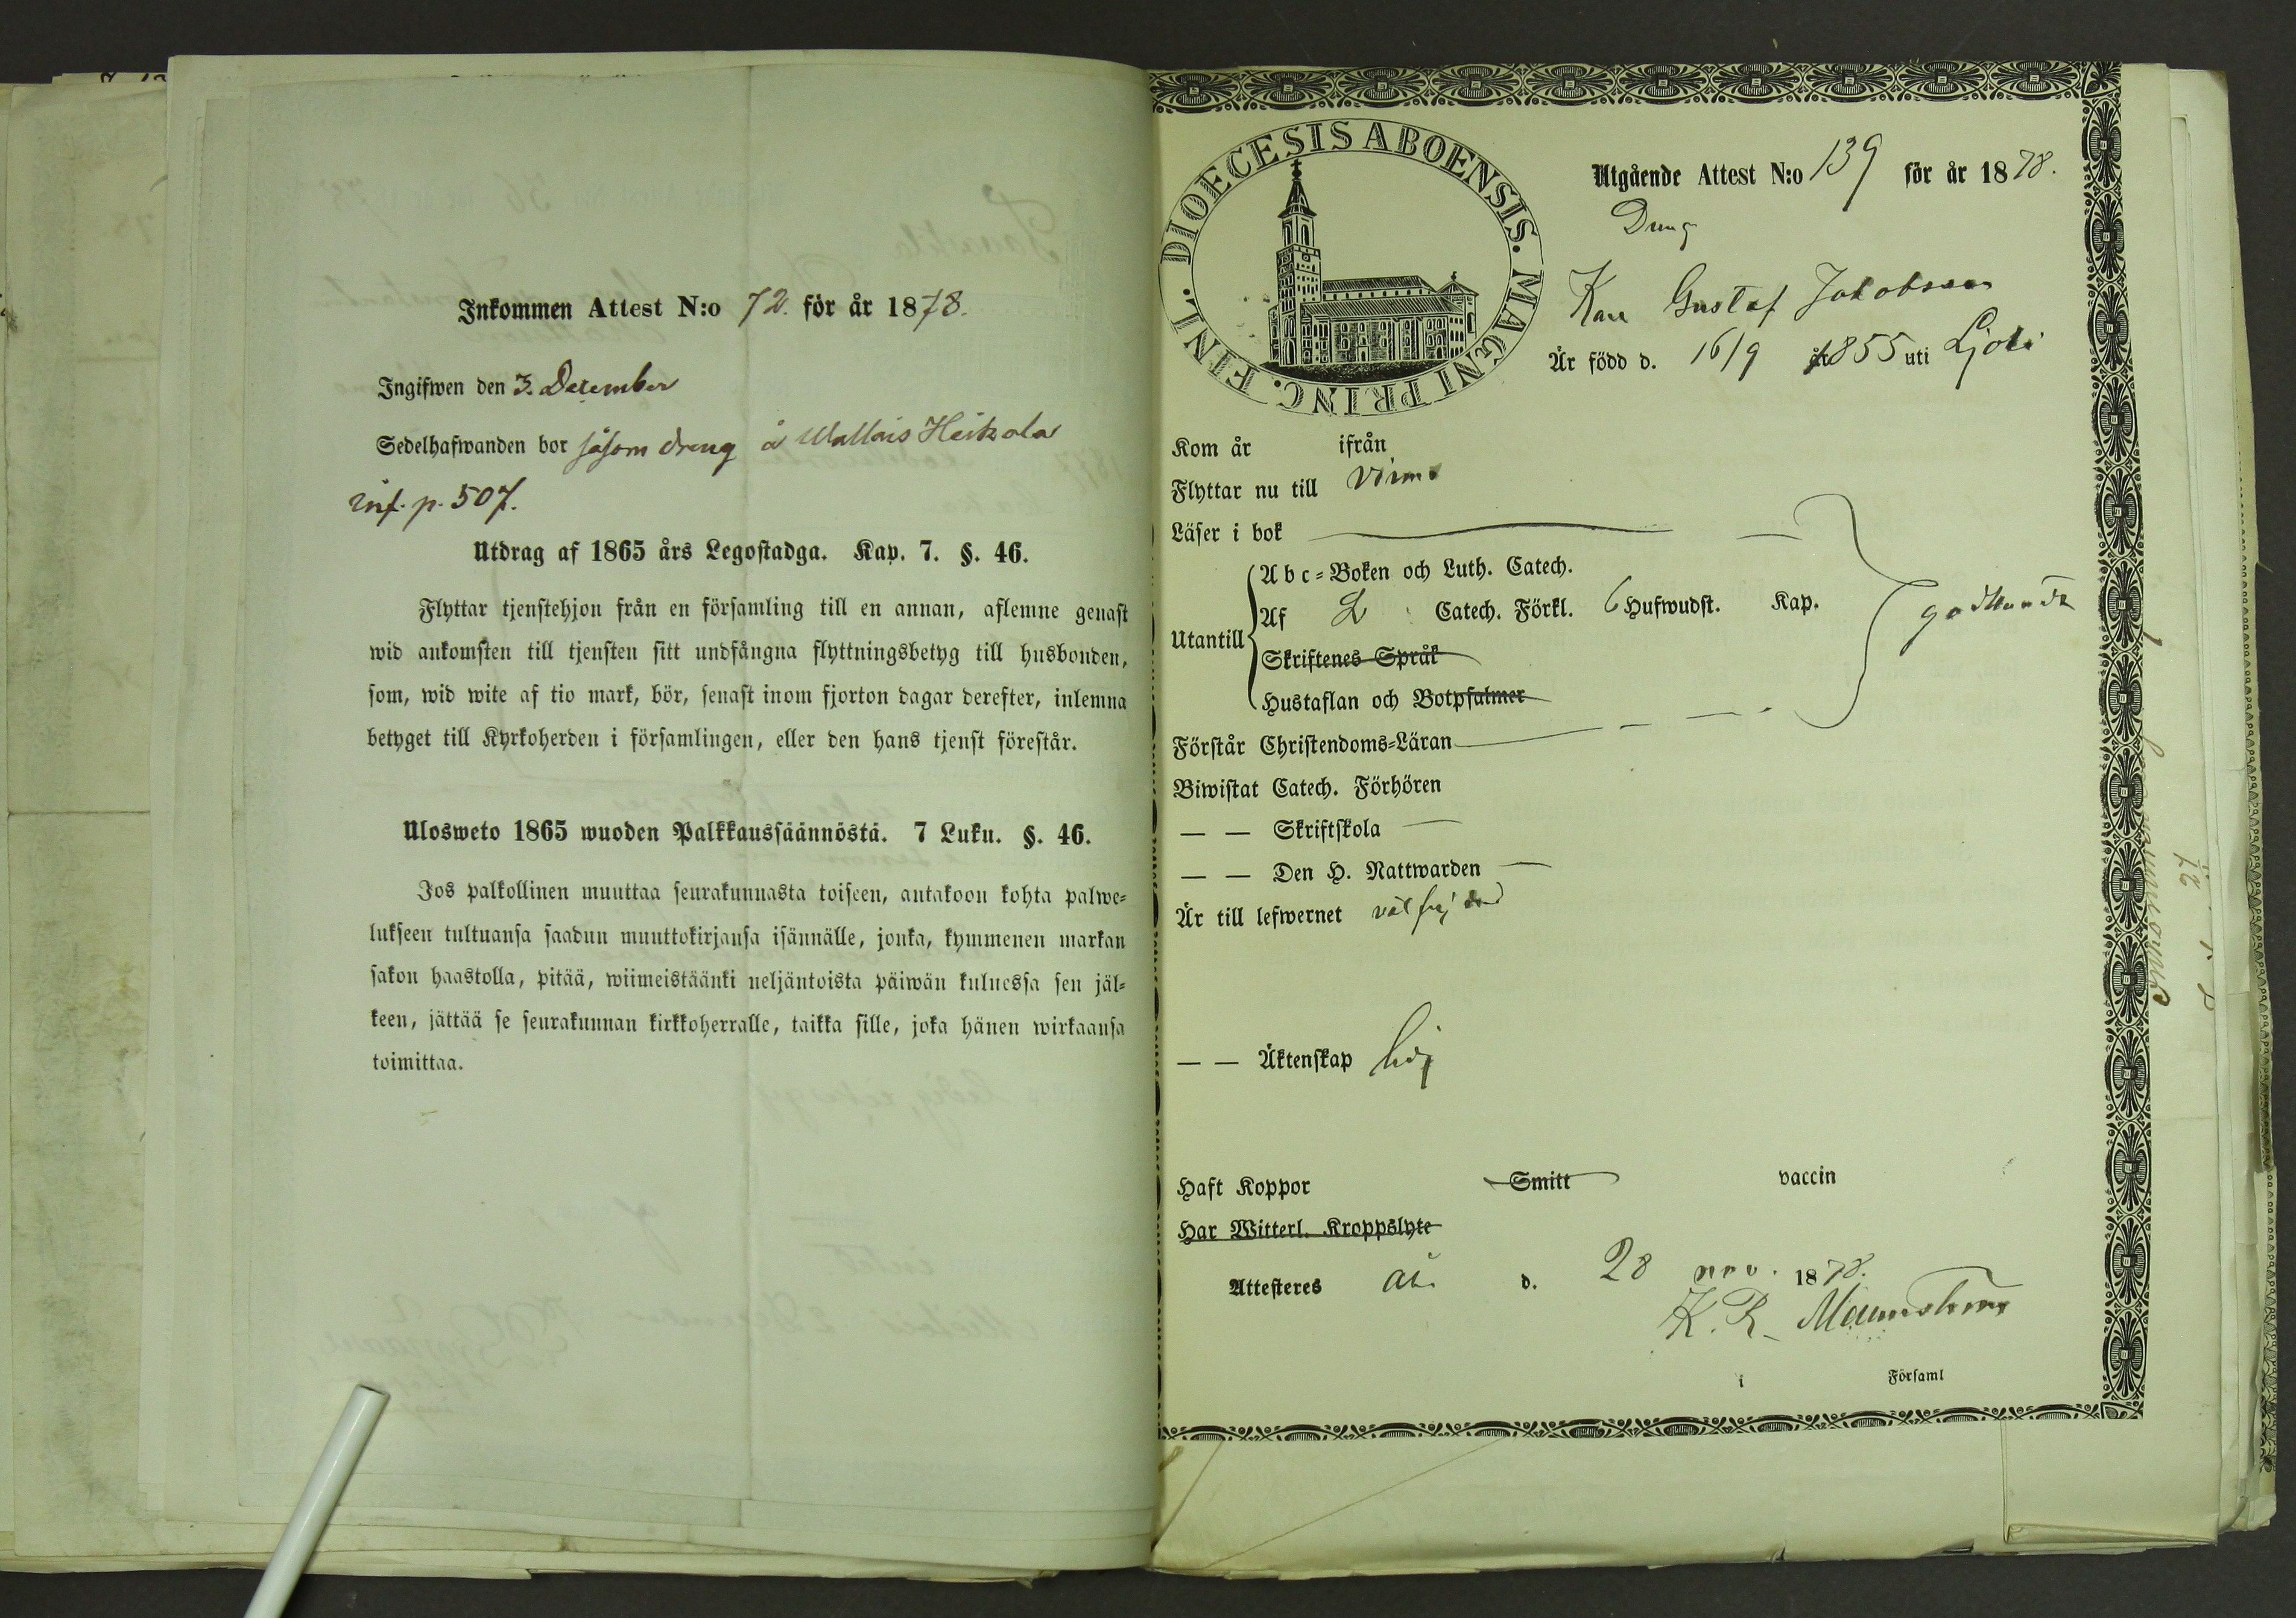 Inkommen Attest N:o 72. för år 1878.
Ingifwen den 3. December
Sedelhafwanden bor såsom dreng å Wallais Heikola
inf. p. 507.
Utdrag af 1865 års Legostadga. Kap. 7. §. 46.
Flyttar tjenstehjon från en församling till en annan, aflemne genast
wid ankomsten till tjensten sitt undfångna flyttningsbetyg till husbonden,
som, wid wite af tio mark, bör, senast inom fjorton dagar derefter, inlemna
betyget till Kyrkoherden i församlingen, eller den hans tjenst förestår.
Ulosweto 1865 wuoden Palkkaussäännöstä. 7 Luku. §. 46.
Jos palkollinen muuttaa seurakunnasta toiseen, antakoon kohta palwe-
lukseen tultuansa saadun muuttokirjansa isännälle, jonka, kymmenen markan
sakon haastolla, pitää, wiimeistäänki neljäntoista päiwän kuluessa sen jäl-
keen, jättää se seurakunnan kirkkoherralle, taikka sille, joka hänen wirkaansa
toimittaa.
DIOECESIS ABOENSIS. MAGNI PRINC. FINL.
Utgående Attest N:o 139 för år 1878.
Dreng
Karl Gustaf Jakobsson
Är född d. 16/9 år 1855 uti
Kom år ifrån
Flyttar nu till Virmo
Läser i bok
Utantill
Abc-Boken och Luth. Catech.
Af Catech. Förkl. 6 Hufwudst. Kap.
Skriftenes Språk
Hustaflan och Botpsalmer
godkändt
Förstår Christendoms-Läran
Biwistat Catech. Förhören
— — Skriftskola
— — Den H. Nattwarden
Är till lefwernet väl frejdad
— — Äktenskap
Haft Koppor Smitt vaccin
Har Witterl. Kroppslyte
Attesteres Åbo d. 28 nov. 1878.
K. R. Malmström
i Församl